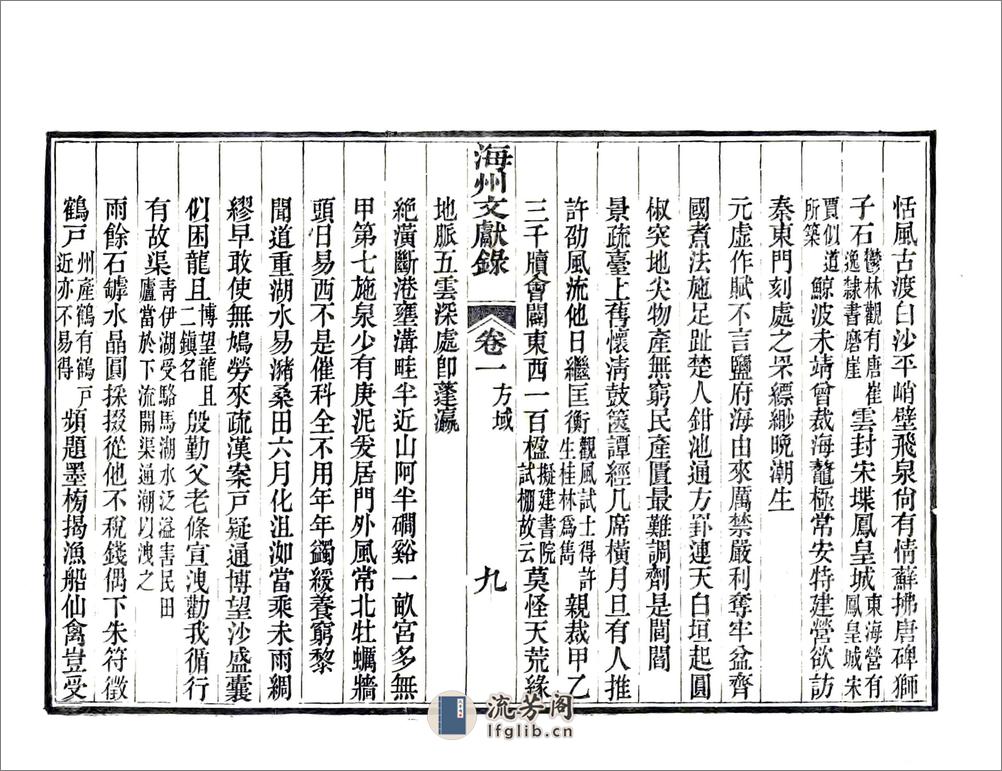 恬風古渡白沙平峭壁飛泉尙有情蘚拂唐碑獅
子石鬱林觀有唐崔逸隸書磨崖雲封宋堞鳳皇城東海營有鳳皇城宋
賈似道所築鯨波未靖曾裁海鼇極常安特建營欲訪
秦東門刻處之罘縹緲晚潮生
元虛作賦不言鹽府海由來厲禁嚴利奪牢盆齊
國煮法施足趾楚人鉗池通方卦連天白垣起圓
椒突地尖物產無窮民產匱最難調劑是閭閻
景疏臺上舊懷淸鼓篋譚經几席橫月旦有人推
許劭風流他日繼匡衡觀風試士得許生桂林爲雋親裁甲乙
三千牘會闢東西一百楹擬建書院試棚故云莫怪天荒緣
地脈五雲深處卽蓬瀛
海州文獻錄 卷一 方域 九
絶潢斷港壅溝畦半近山阿半磵谿一畝宮多無
甲第七施泉少有庚泥岌居門外風常北牡蠣牆
頭日易西不是催科全不用年年蠲緩養窮黎
聞道重湖水易瀦桑田六月化沮洳當乘未雨綢
繆早敢使無鳩勞來疏漢案戶疑通博望沙盛囊
似困龍且博望龍且二鎮名殷勤父老條宣洩勸我循行
有故渠靑伊湖受駱馬湖水泛溢害民田廬當於下流開渠通潮以洩之
雨餘石罅水晶圓採掇從他不稅錢偶下朱符徵
鶴戶州產鶴有鶴戶近亦不易得頻題墨榜揭漁船仙禽豈受
流芳阁
lfglib.cn